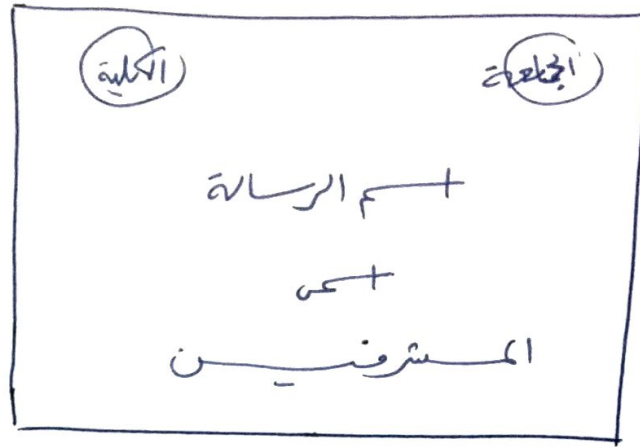 الجامعة الكلية
اسم الرسالة
اسمى
المشرفين